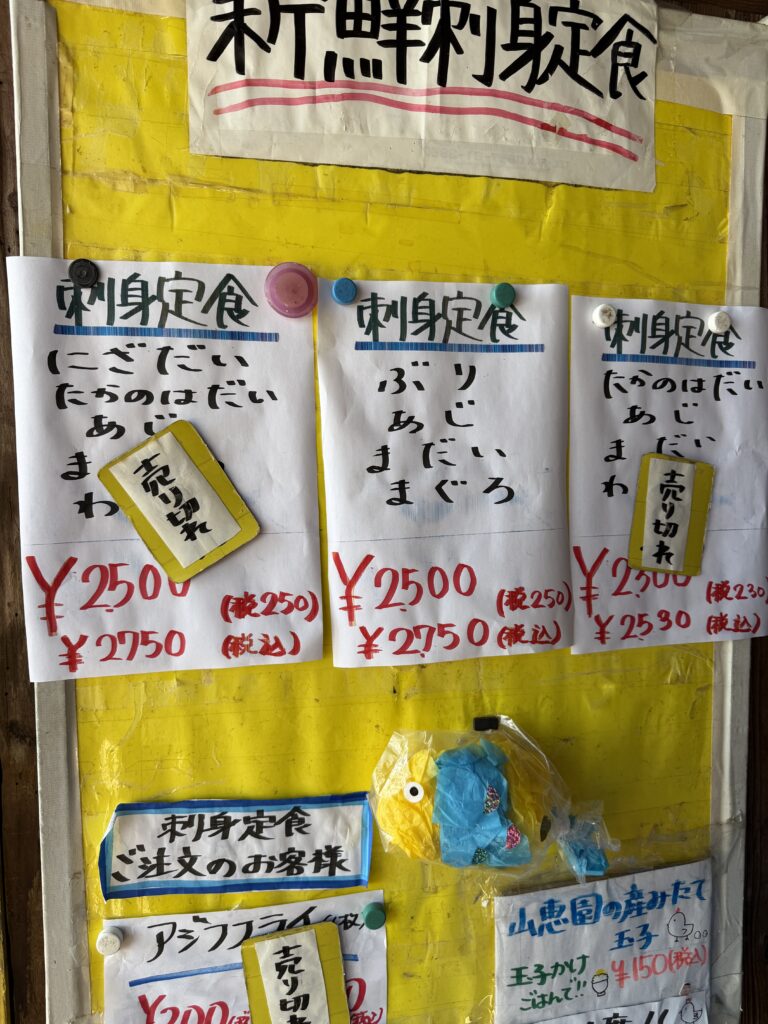 新鮮刺身定食
刺身定食
にざだい
たかのはだい
あじ
ま
わ
売り切れ
¥2500
(税250)
¥2750 (税込)
刺身定食
ぶり
あじ
まだい
まぐろ
¥2500 (税250)
¥2750 (税込)
刺身定食
たかのはだい
あじ
まだい
わ
売り切れ
¥2300 (税230)
¥2530 (税込)
刺身定食
ご注文のお客様
アジフライ
売り切れ
¥200
山恵園の産みたて
玉子
玉子かけ
ごはんで!!
¥150(税込)